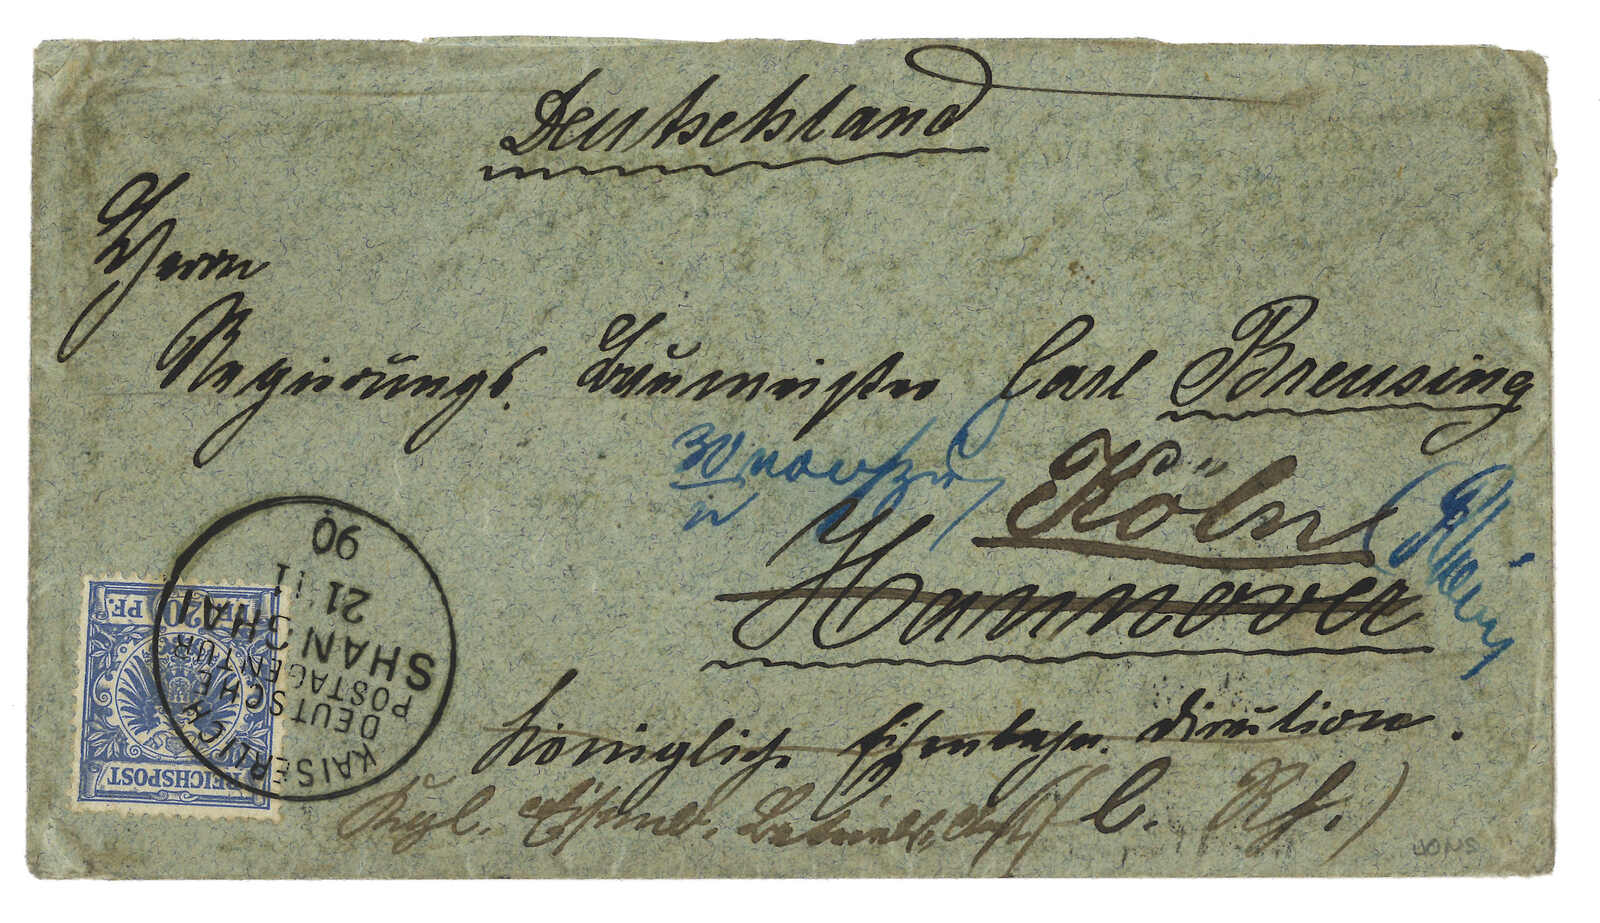 Deutschland
Herrn
Regierungs. Baumeister Carl Breusing
30
Köln (Rhein
Hannover
Königliche Eisenbahn. direktion.
Kgl. Eisenb. Betriebs. Amt (C. Rh.)
KAISERLICH
DEUTSCHE
POSTAGENTUR
SHANGHAI
21 11
90
REICHSPOST
20 PF.